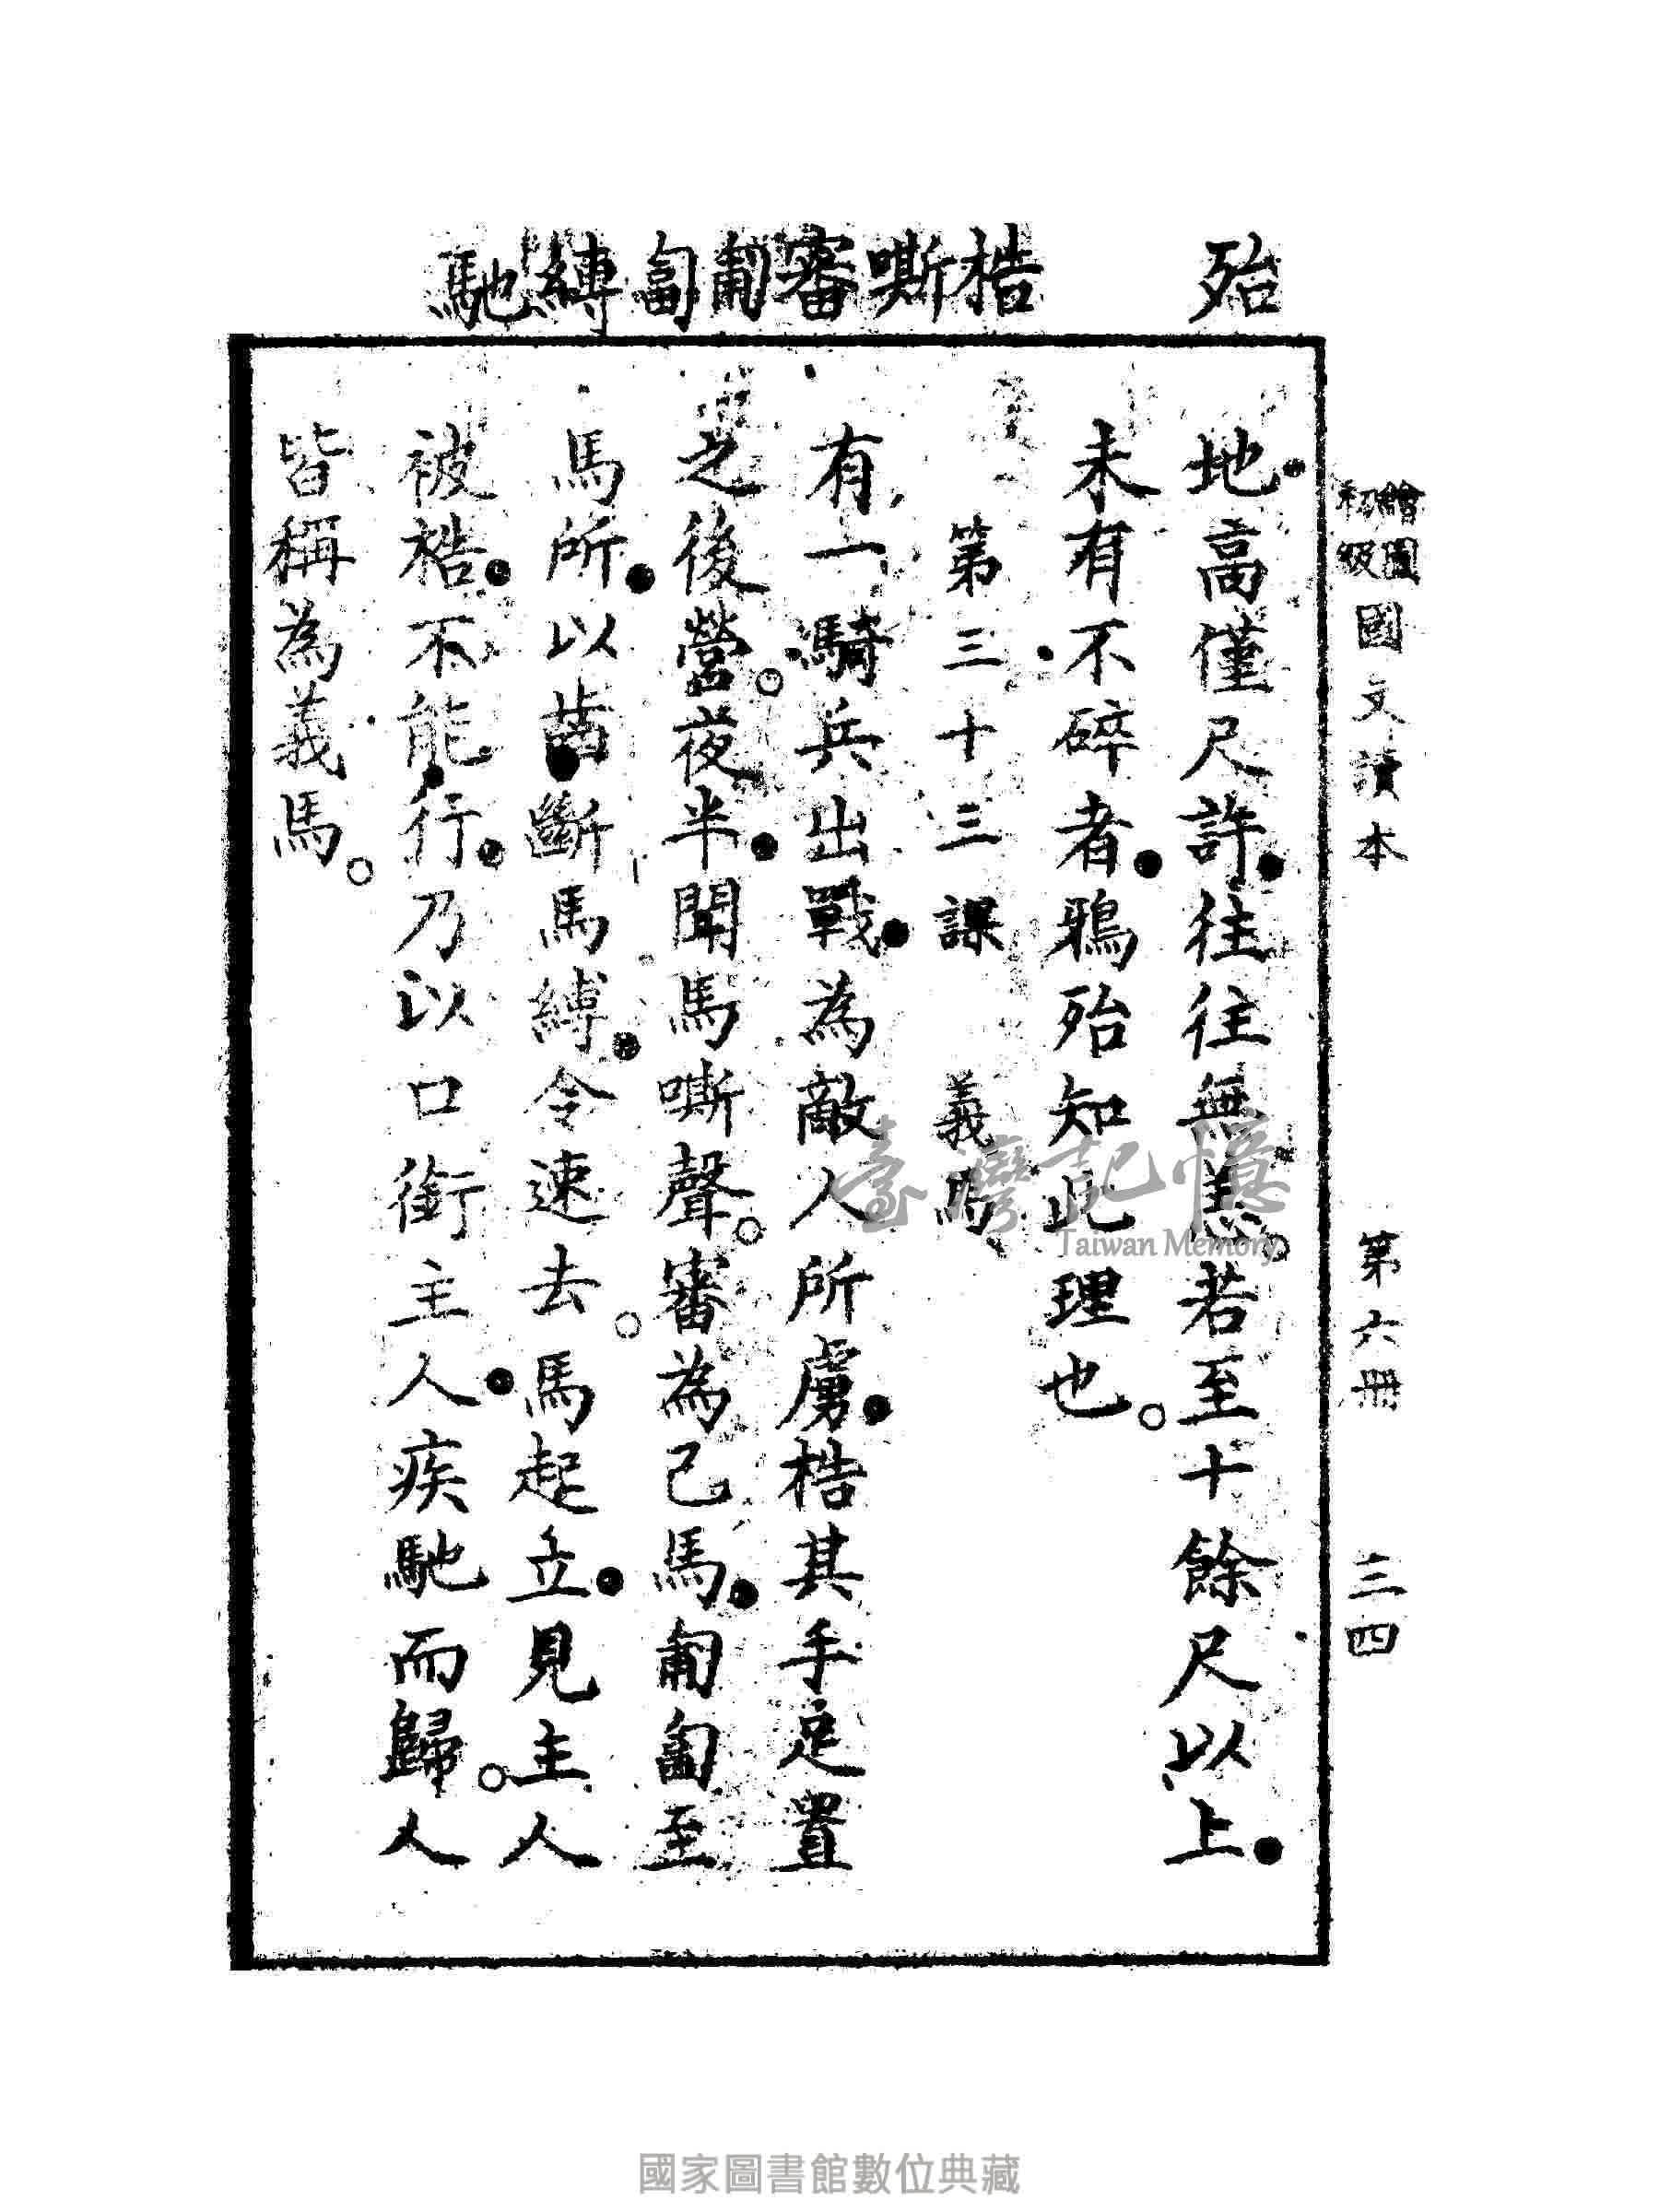 繪圖
初級
國文讀本 第六冊 三四
殆
梏嘶審匍匐縛馳
地高僅尺許往往無恙。若至十餘尺以上
未有不碎者鴉殆知此理也。
第三十三課 義馬
有一騎兵出戰為敵人所虜梏其手足置
之後營。夜半聞馬嘶聲。審為己馬匍匐至
馬所以齒斷馬縛令速去。馬起立見主人
被梏不能行乃以口銜主人疾馳而歸。人
皆稱為義馬。
臺灣記憶
Taiwan Memory
國家圖書館數位典藏